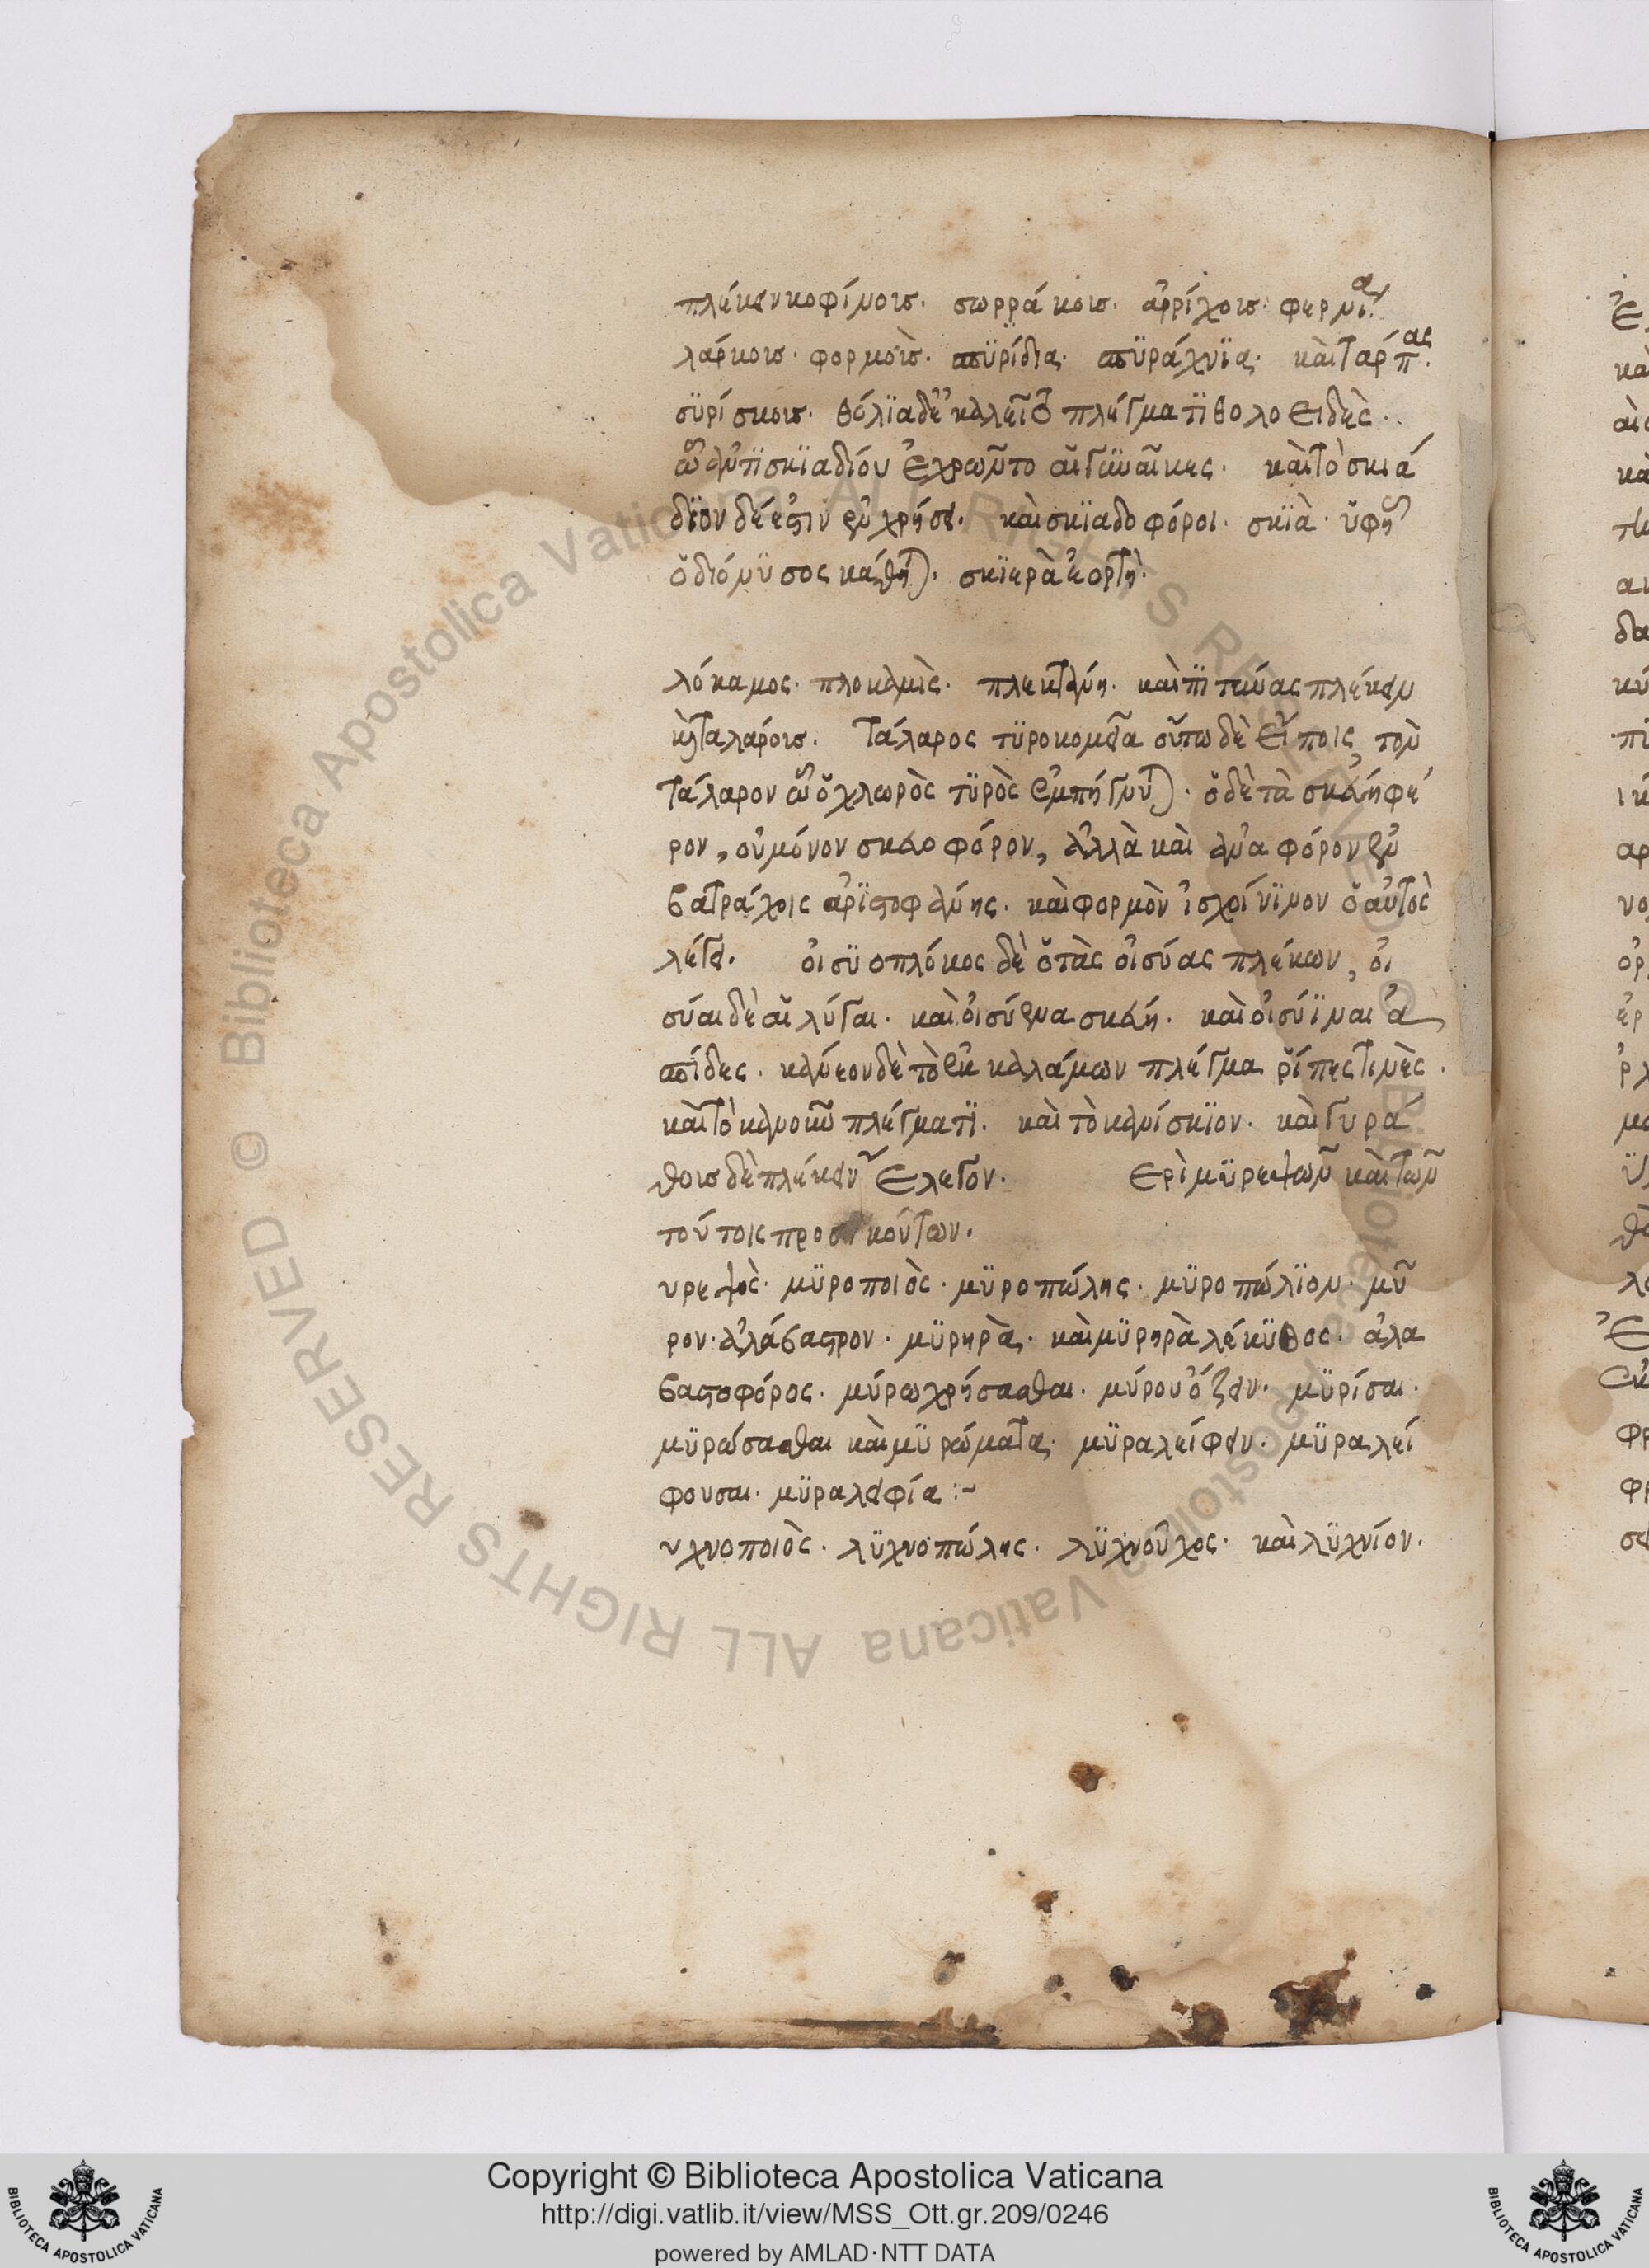 πλέκειν κοφίνοις. σωρράκοις. ἀρρίχοις. φερνία
λάρκοις. φορμοῖς. σπϋρίδια. σπϋράχνϊα. καὶ ταρπ ας.
σϋρίσκοις. θόλϊα δὲ καλεῖται πλέγμα τῒ θολοειδὲς.
ὧ ἀντῒ σκϊαδίου ἐχρῶντο αἱ γυναῖκες. καὶ τὸ σκιά
δϊον δέ ἐστιν ἐν χρήσει. καὶ σκϊαδοφόροι. σκϊὰ. ὑφ' ἧ
ὁ διόνϋσος κάθηται. σκϊερὰ ἑορτὴ.
λόκαμος. πλοκαμὶς. πλεκτάνη. καὶ πιτύνας πλέκειν
καὶ ταλάροις. τάλαρος τϋροκομεῖα οὕτω δὲ εἴποις τὸν
τάλαρον ὧ ὁ χλωρὸς τϋρὸς ἐμπήγνυται. ὁ δὲ τὰ σκεύη φέ
ρον, οὐ μόνον σκευοφόρον, ἀλλὰ καὶ ἀναφόρον ἐν
βατράχοις ἀρϊστοφάνης. καὶ φορμὸν ἰσχοίνϊνον ὁ αὐτὸς
λέγει. οἰσϋοπλόκος δὲ ὁ τὰς οἰσύας πλέκων, οἰ
σύαι δὲ αἱ λύγαι. καὶ οἰσύενα σκεύη. καὶ οἰσύϊναι ἀ
σπίδες. κάνεον δὲ τὸ ἐκ καλάμων πλέγμα ῥίπες τινὲς.
καὶ τὸ κανοῦν πλέγμα τϊ. καὶ τὸ κανίσκϊον. καὶ γυρά
θοις δὲ πλέκειν ἔλεγον. ερὶ μϋρεψῶν καὶ τῶν
τούτοις προσηκόντων.
υρεψὸς. μϋροποιὸς. μϋροπώλης. μϋροπώλϊον. μῦ
ρον. ἀλάβαστρον. μϋρηρὰ. καὶ μϋρηρὰ λέκϋθος. ἀλα
βαστοφόρος. μύρω χρήσασθαι. μύρου ὄζειν. μϋρίσαι.
μϋρώσασθαι καὶ μϋρώματα. μϋραλείφειν. μϋραλεί
φουσαι. μϋραλειφία :-
υχνοποιὸς. λϋχνοπώλης. λϋχνοῦχος. καὶ λϋχνίον.
Copyright © Biblioteca Apostolica Vaticana
http://digi.vatlib.it/view/MSS_Ott.gr.209/0246
powered by AMLAD·NTT DATA